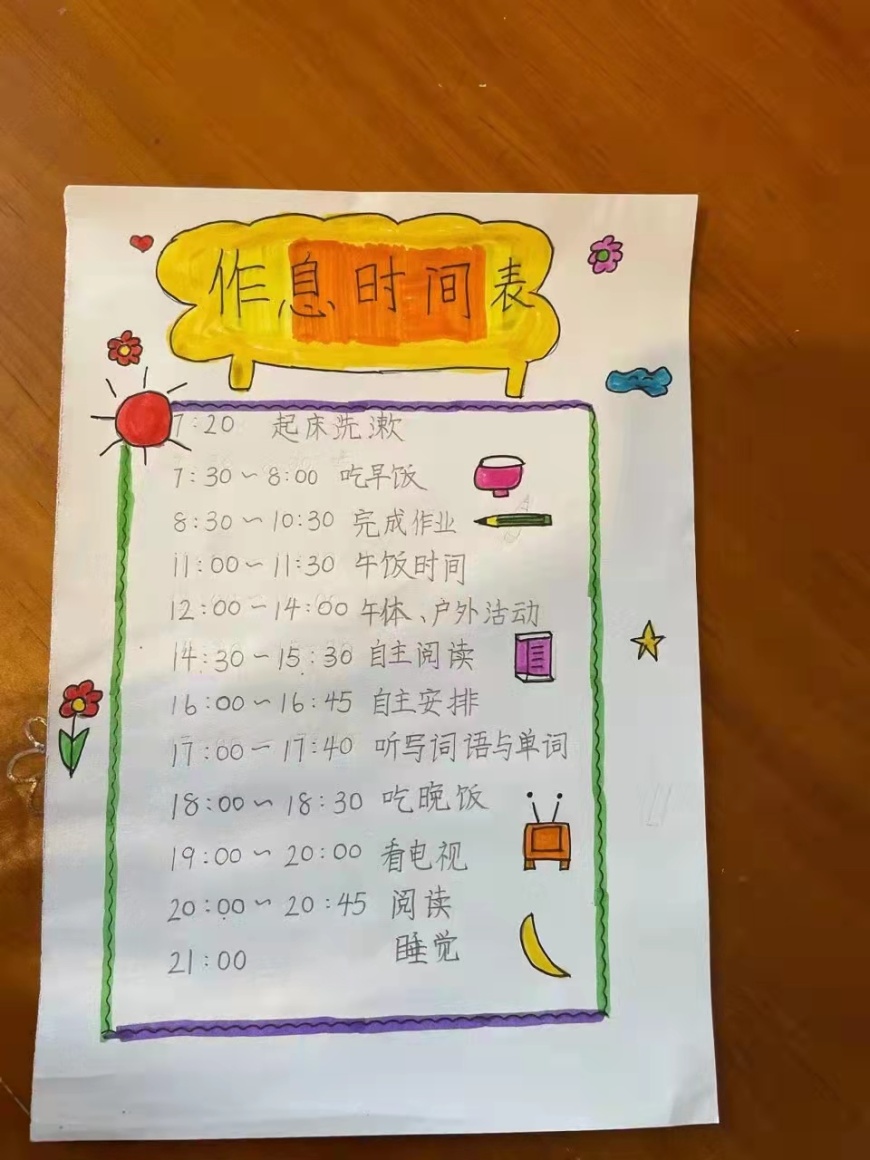 作息时间表
7:20 起床洗漱
7:30~8:00 吃早饭
8:30~10:30 完成作业
11:00~11:30 午饭时间
12:00~14:00 午体、户外活动
14:30~15:30 自主阅读
16:00~16:45 自主安排
17:00~17:40 听写词语与单词
18:00~18:30 吃晚饭
19:00~20:00 看电视
20:00~20:45 阅读
21:00 睡觉